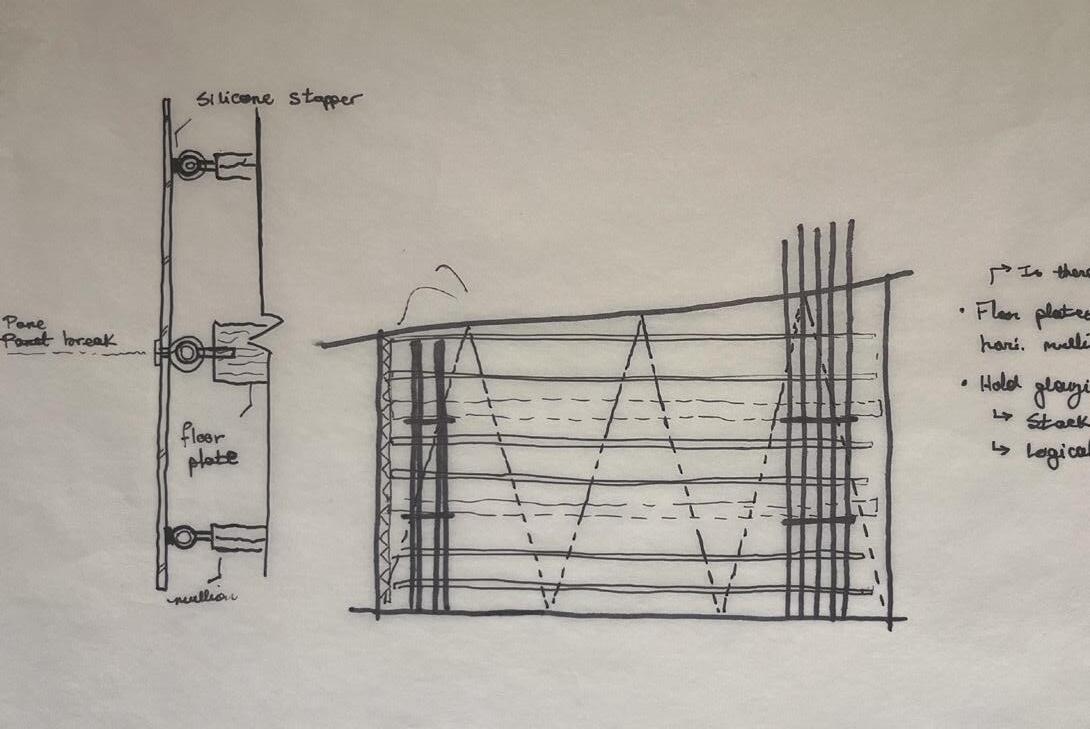 Silicone Stopper
Pane
Panel break
floor
plate
mullion
↱ Is there
• Floor plate
hori. mulli
• Hold glazi
↳ Stack
↳ Logical